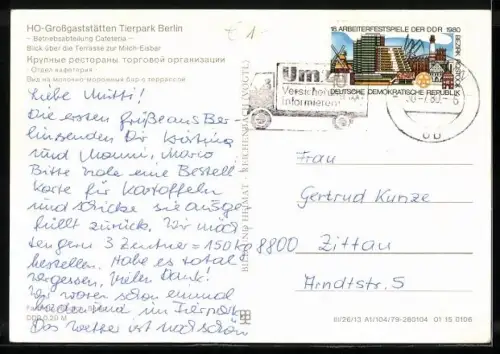 HO-Großgaststätten Tierpark Berlin
– Betriebsabteilung Cafeteria –
Blick über die Terrasse zur Milch-Eisbar
Крупные рестораны торговой организации
- Отдел кафетерия
Вид на молочно-мороженый бар с террасой
€ 1.-
Liebe Mutti!
Die ersten Grüße aus Ber-
lin senden Dir
und Manni, Mario
Bitte hole eine Bestell
Karte für Kartoffeln
und schicke sie ausge-
füllt zurück. Wir möch
ten gern 3 Zentner = 150 kg
bestellen. Habe es total
vergessen, Vielen Dank!
Wir waren schon einmal
baden und im Tierpark.
Das Wetter ist auch schön
DDR 0,20 M
BILD UND HEIMAT · REICHENBACH (VOGTL)
18. ARBEITERFESTSPIELE DER DDR 1980
BEZIRK ROSTOCK
DEUTSCHE DEMOKRATISCHE REPUBLIK
20
Um
Versicher
Informieren!
-7.80.-6
Frau
Gertrud Kunze
8800 Zittau
Arndtstr. 5
III/26/13 A1/104/79-280104 01 15 0106